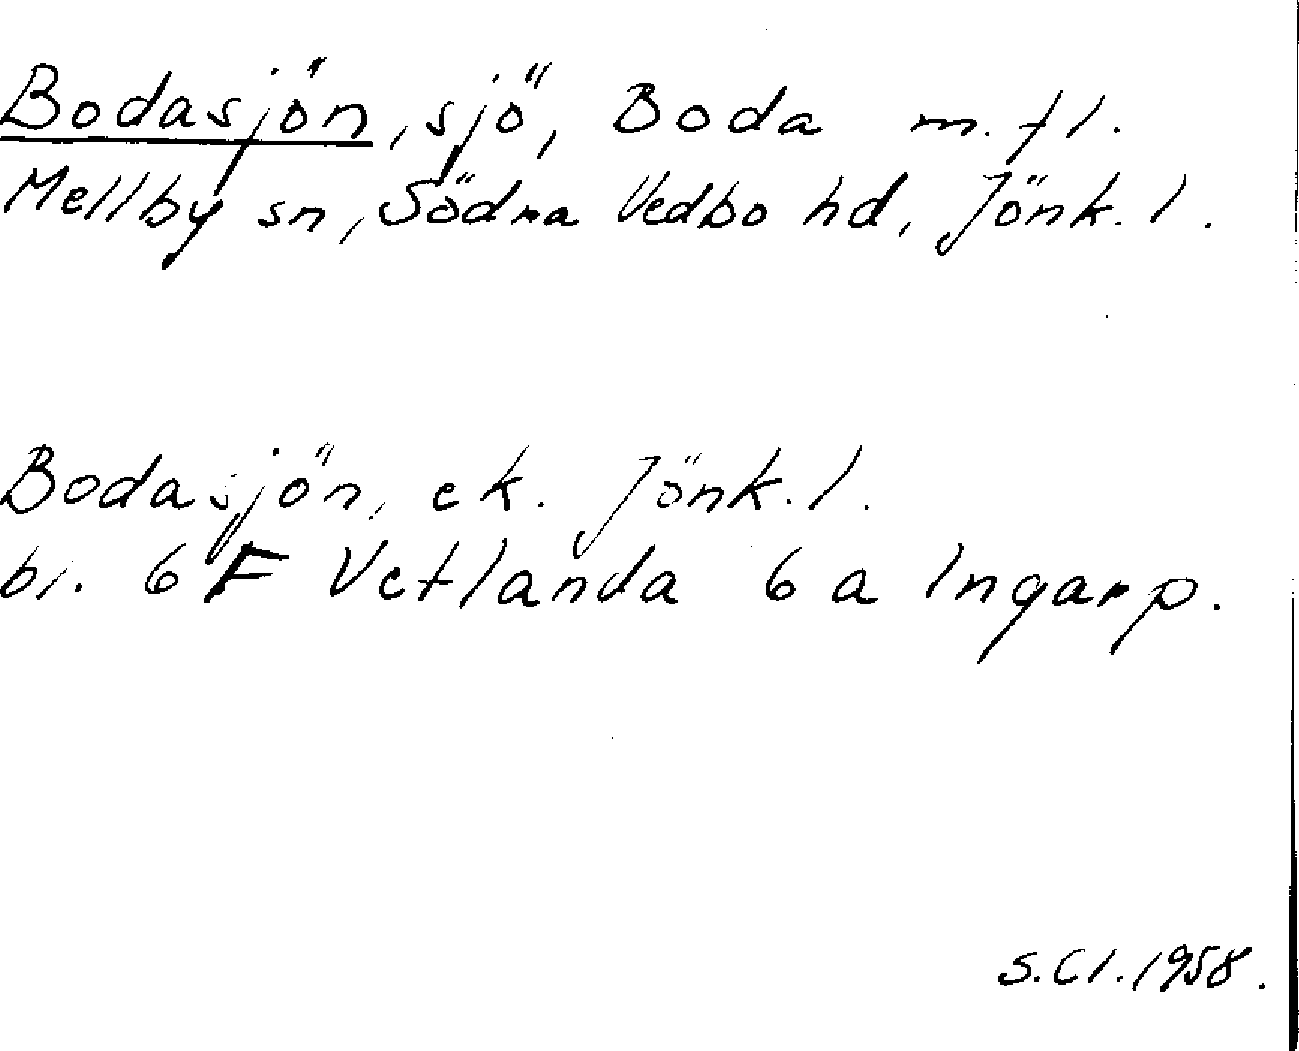 Bodasjön, sjö, Boda m. fl.
Mellby sn, Södra Vedbo hd, Jönk. l.
Bodasjön, ek. Jönk. l.
bl. 6 F Vetlanda 6 a Ingarp.
S. Cl. 1958.